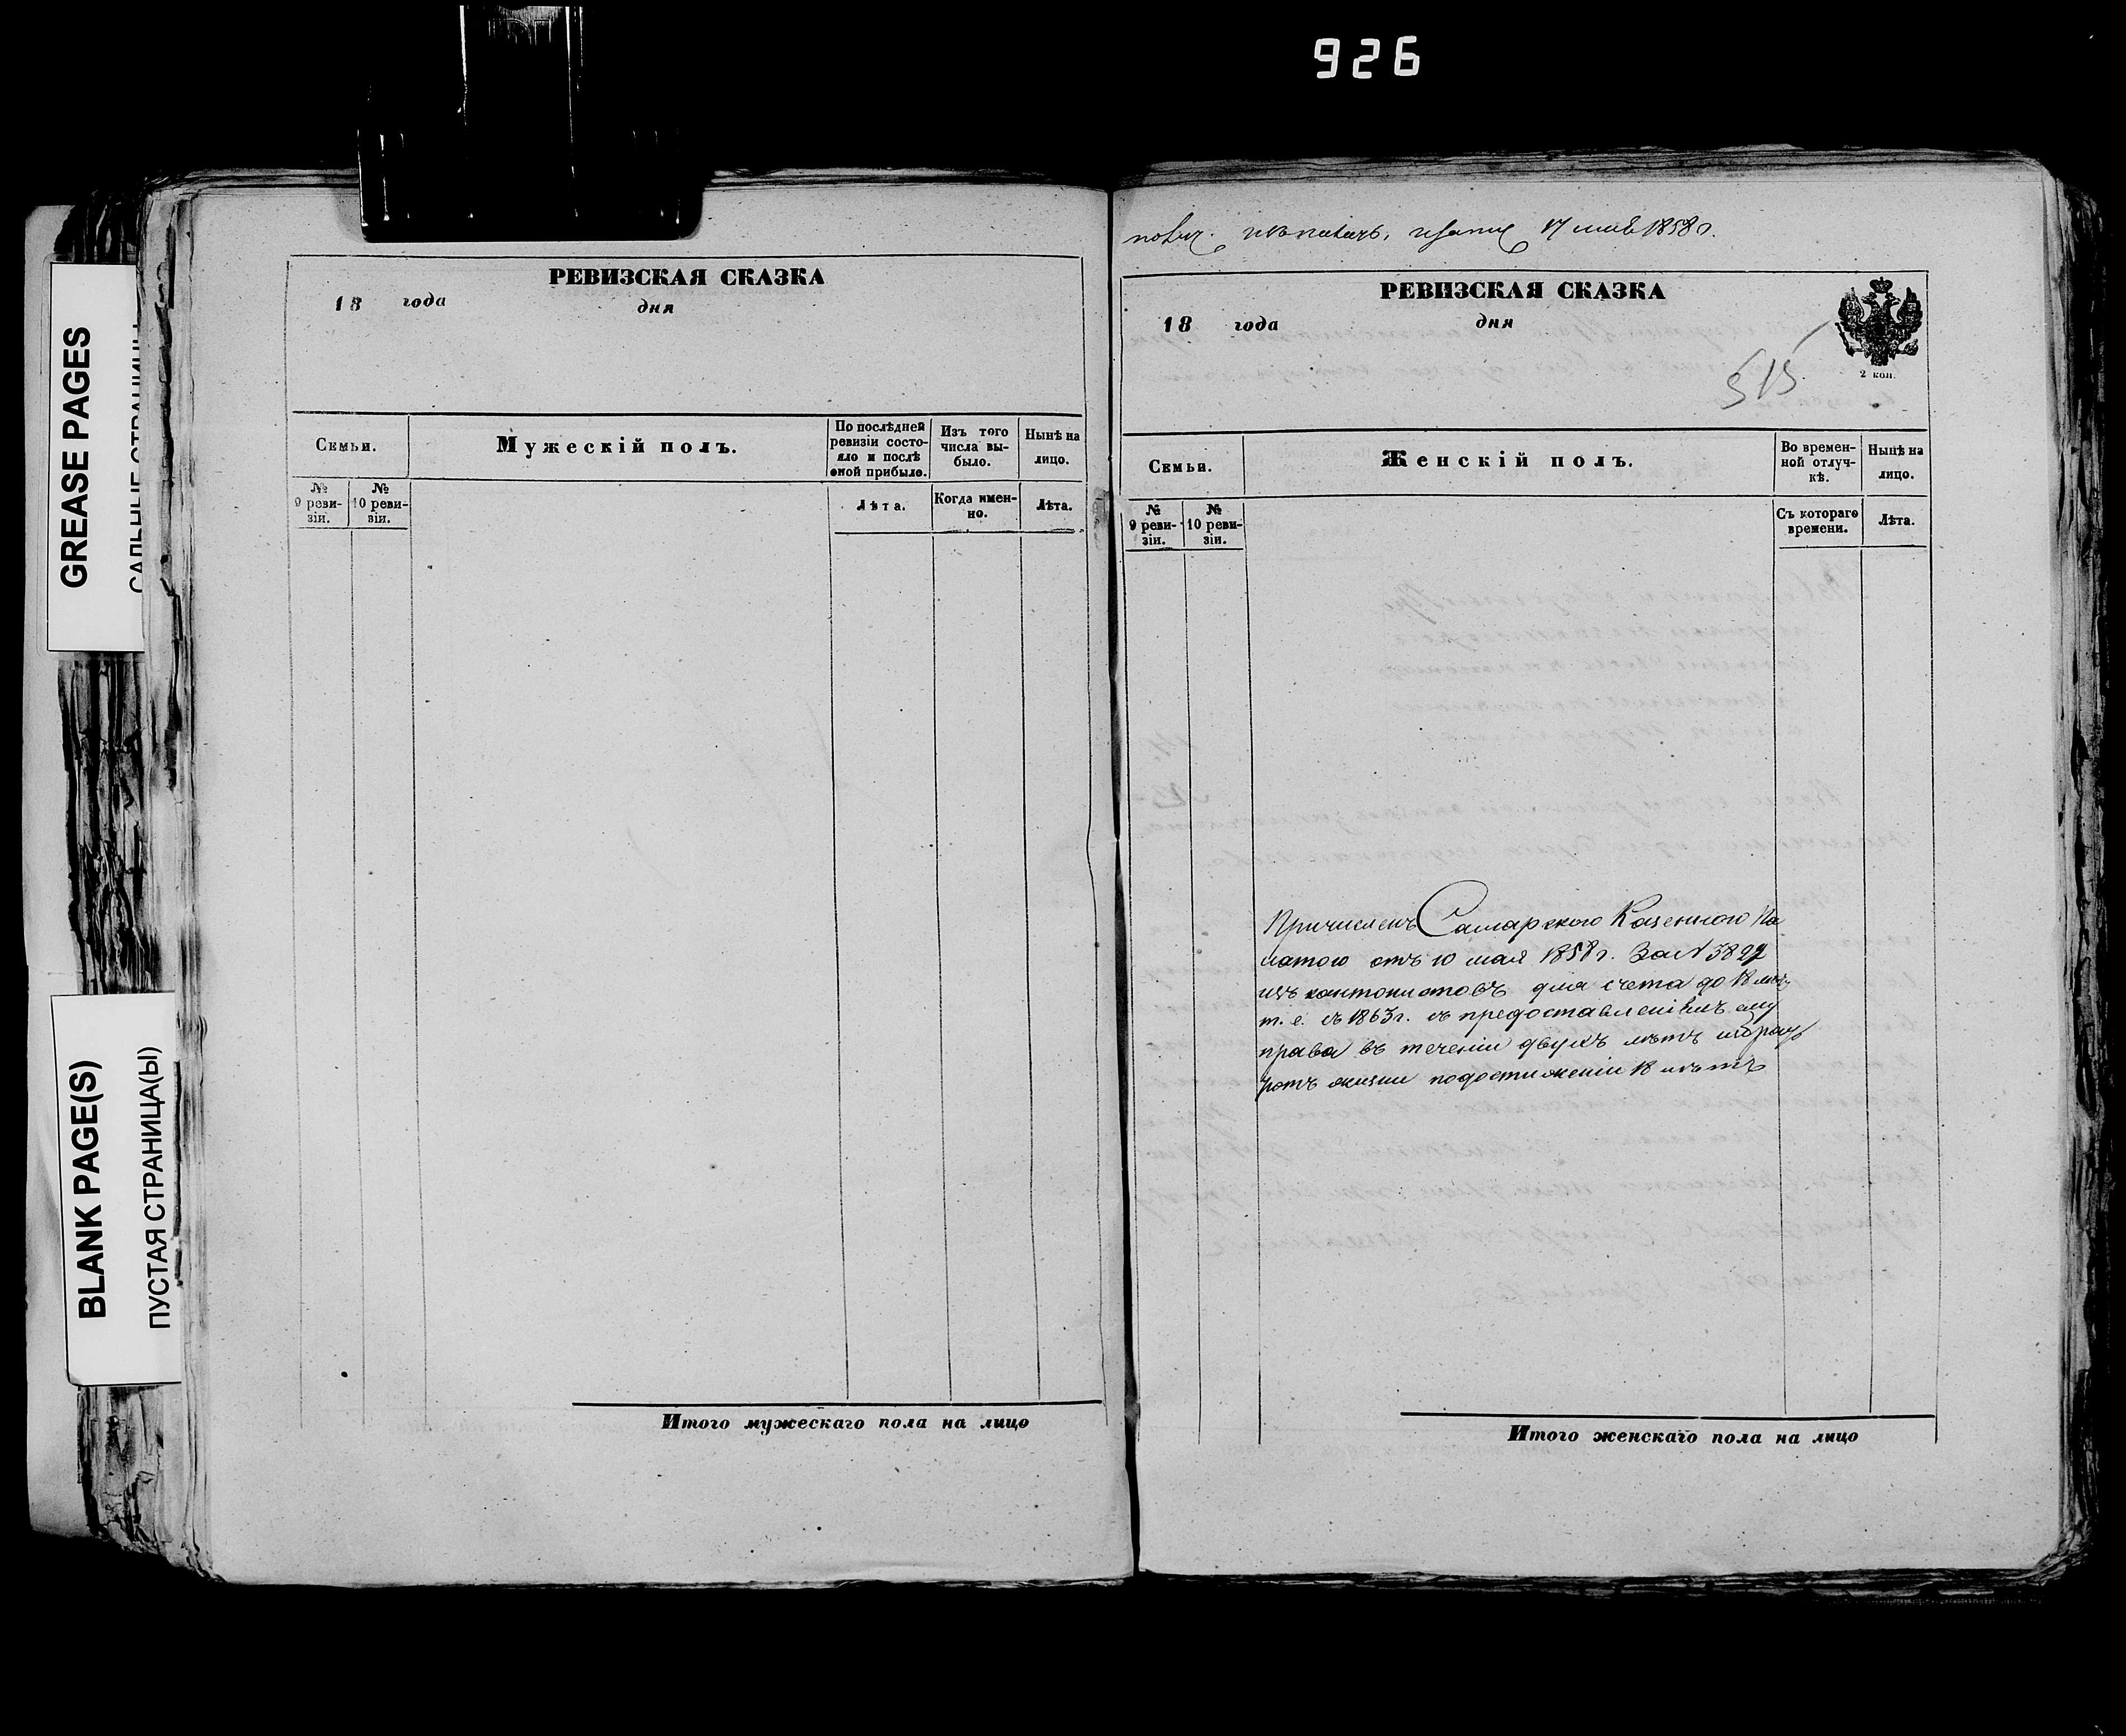 926
GREASE PAGES
САЛЬНЫЕ СТРАНИЦЫ
BLANK PAGE(S)
ПУСТАЯ СТРАНИЦА(Ы)
РЕВИЗСКАЯ СКАЗКА
18 года дня
Семьи.
Мужескій полъ.
По послѣдней
ревизіи состо-
яло и послѣ
оной прибыло.
Изъ того
числа вы-
было.
Нынѣ на
лицо.
№
9 реви-
зіи.
№
10 реви-
зіи.
Лѣта.
Когда имен-
но.
Лѣта.
Итого мужескаго пола на лицо
17 1858 г.
РЕВИЗСКАЯ СКАЗКА
18 года дня
515
2 коп.
Семьи.
Женскій полъ.
Во времен-
ной отлуч-
кѣ.
Нынѣ на
лицо.
№
9 реви-
зіи.
№
10 реви-
зіи.
Съ котораго
времени.
Лѣта.
Причисленъ Самарского Казенного Па
латою отъ 10 мая 1858 г. За №
изъ кантонистовъ для счета до 18 лѣтъ
т. е. съ 1863 г. съ предоставленіемъ ему
права въ теченіи двухъ лѣтъ избрать
родъ жизни по достиженіи 18 лѣтъ
Итого женскаго пола на лицо